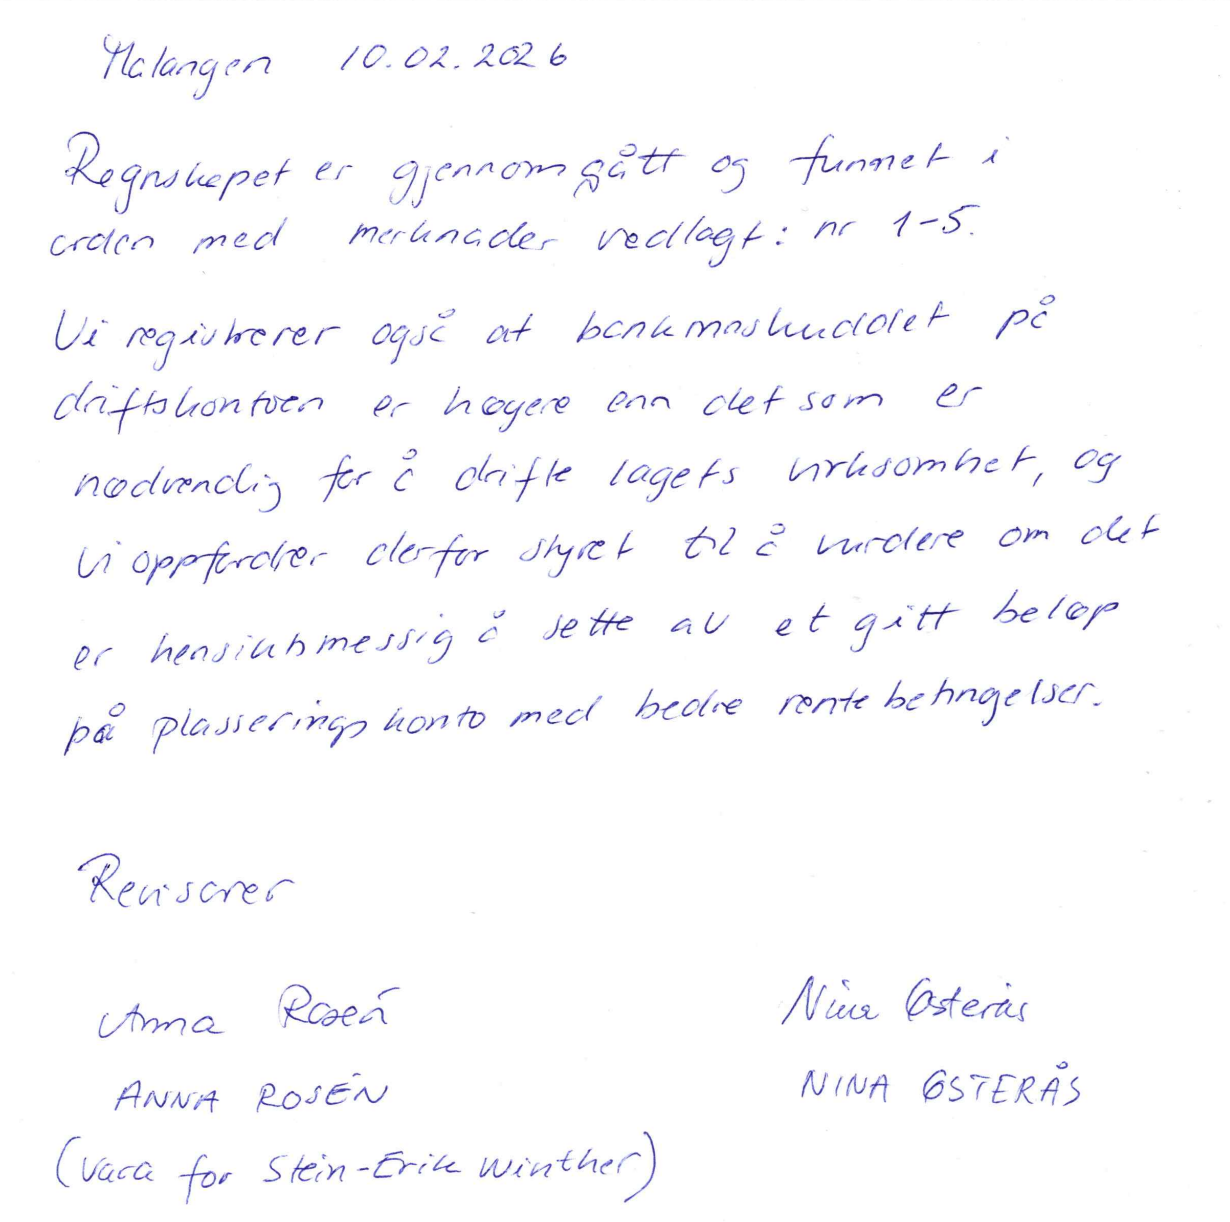 Malangen 10.02.2026
Regnskapet er gjennomgått og funnet i
orden med merknader vedlagt: nr 1-5.
Vi registrerer også at bankinnskuddet på
driftskontoen er høyere enn det som er
nødvendig for å drifte lagets virksomhet, og
vi oppfordrer derfor styret til å vurdere om det
er hensiktsmessig å sette av et gitt beløp
på plasseringskonto med bedre rentebetingelser.
Revisorer
Anna Rosén Nina Østerås
ANNA ROSÉN NINA ØSTERÅS
(vara for Stein-Erik Winther)